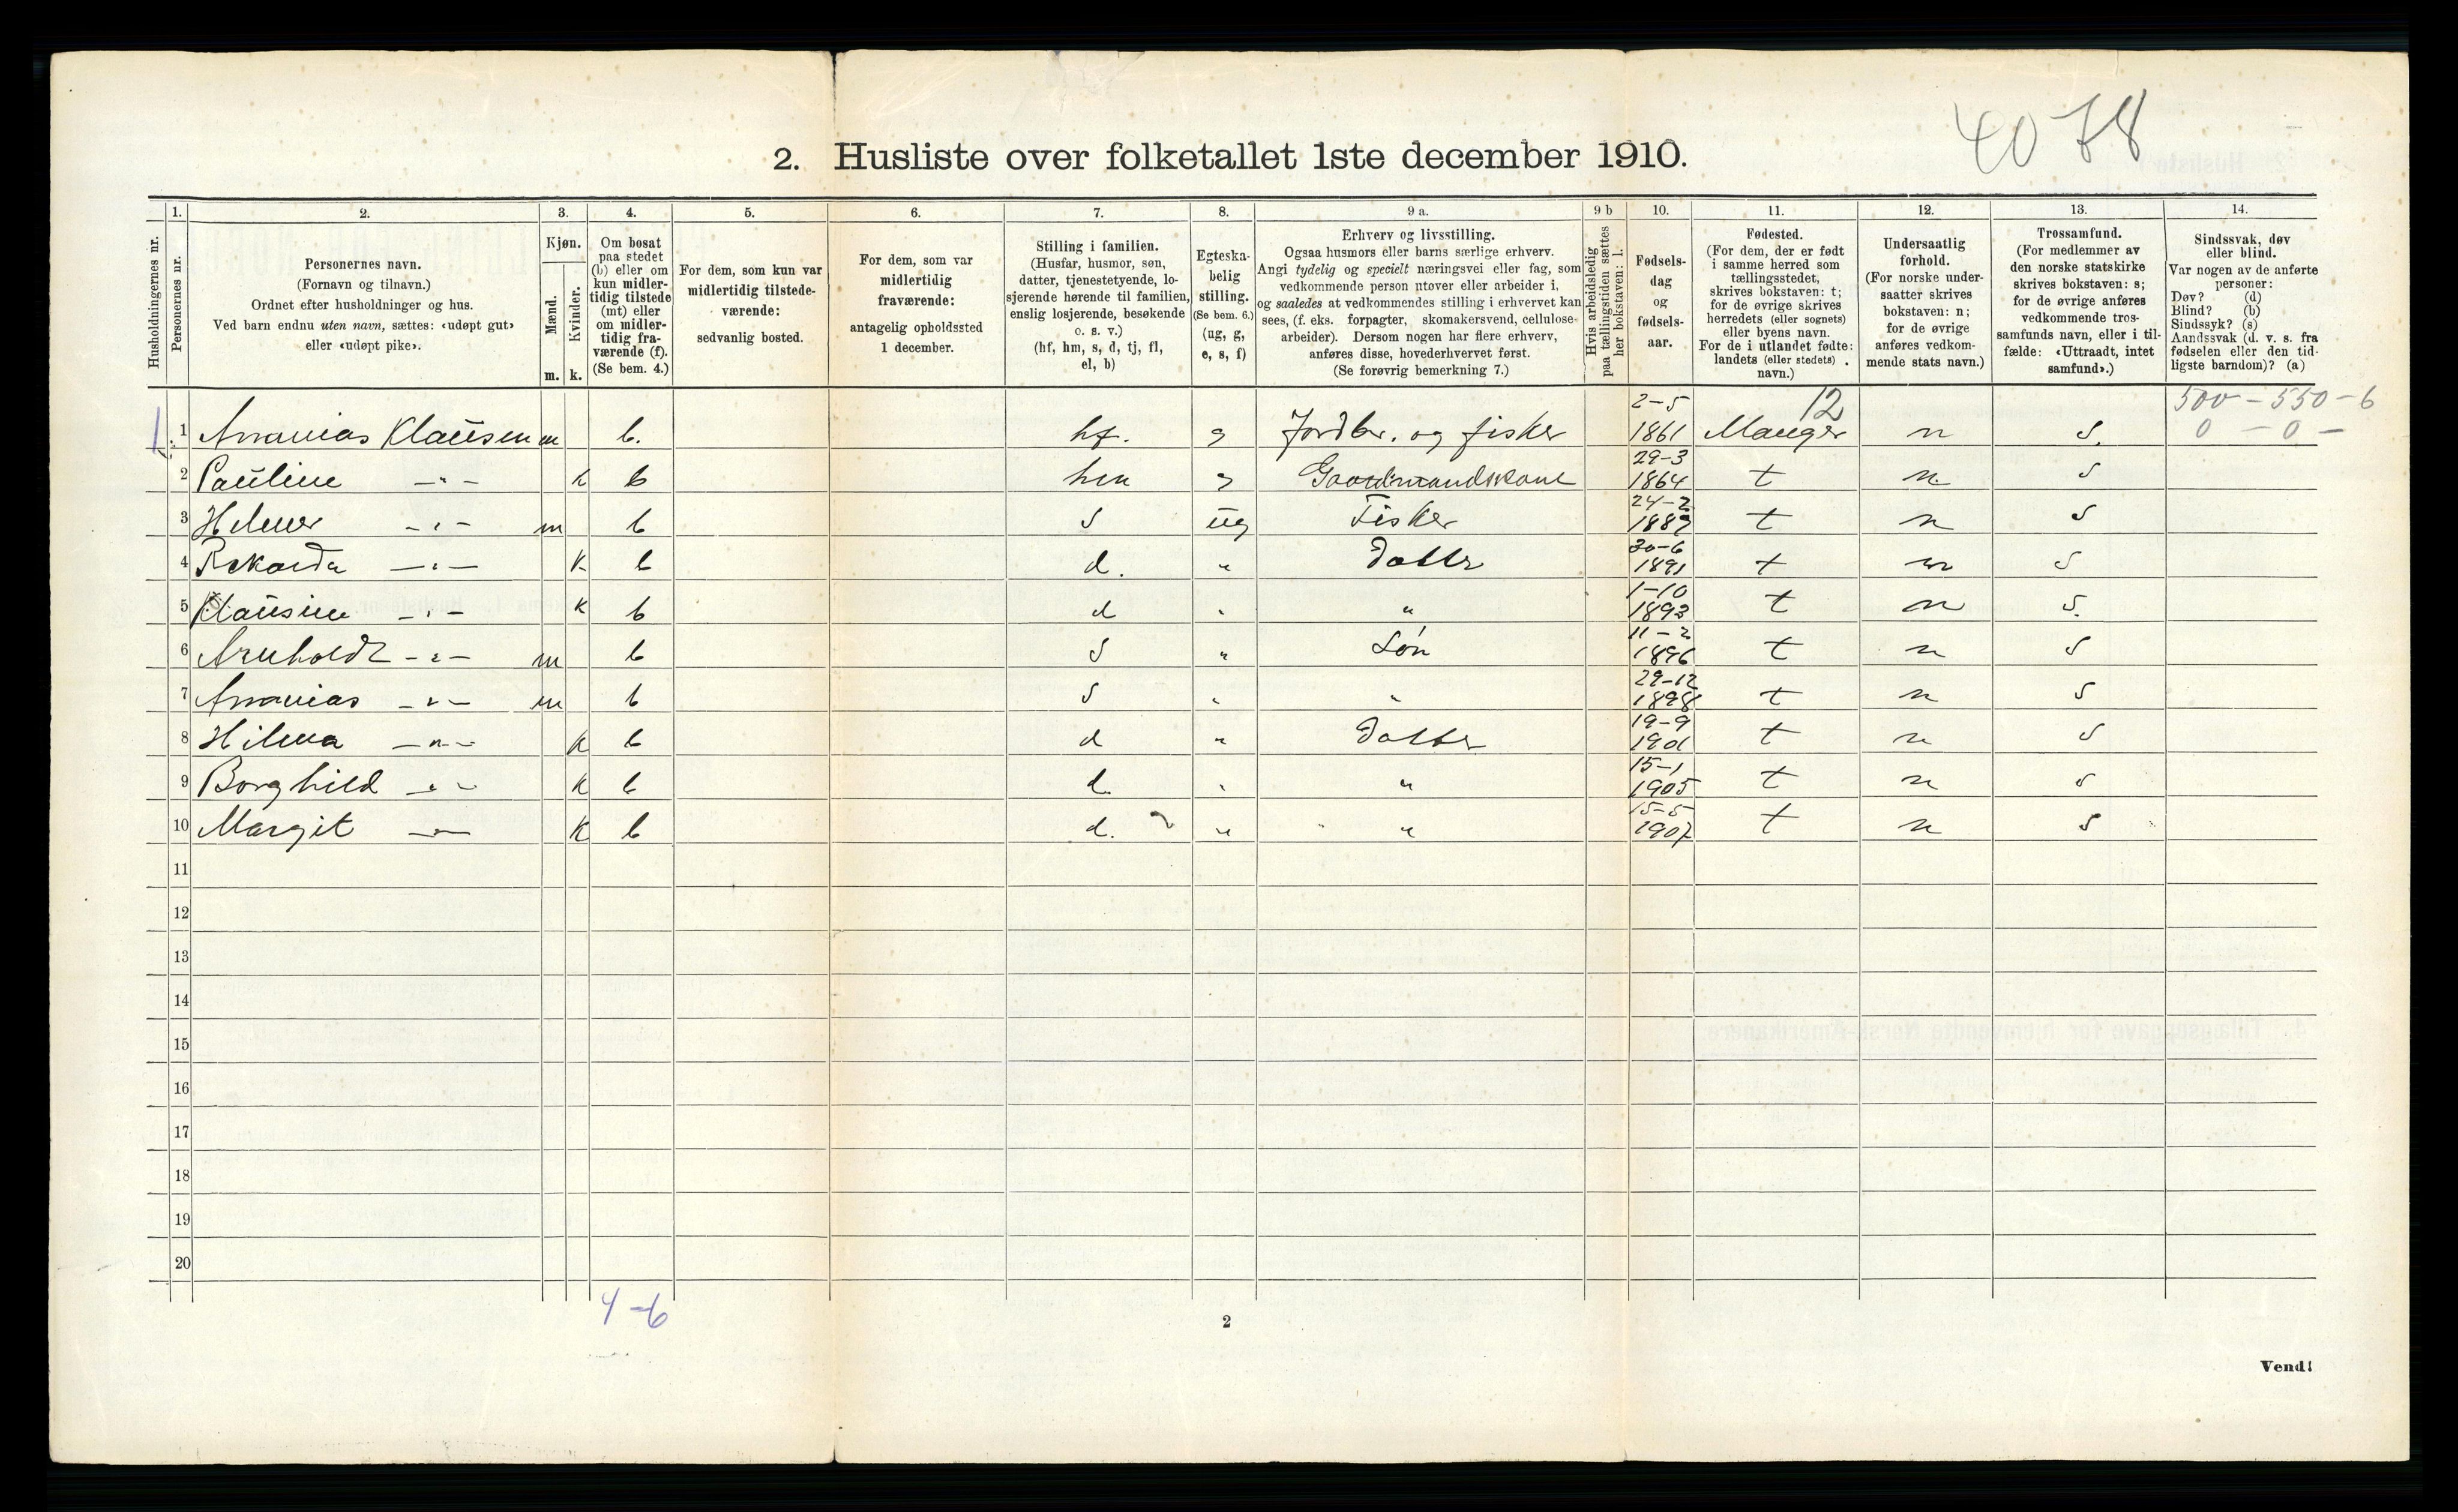 4078
2. Husliste over folketallet 1ste december 1910.
1. 2. 3. 4. 5. 6. 7. 8. 9 a. 9 b 10. 11. 12. 13. 14.
Husholdningernes nr.
Personernes nr.
Personernes navn.
(Fornavn og tilnavn.)
Ordnet efter husholdninger og hus.
Ved barn endnu uten navn, sættes: «udøpt gut»
eller «udøpt pike».
Kjøn.
Mænd.
Kvinder.
m. k.
Om bosat
paa stedet
(b) eller om
kun midler-
tidig tilstede
(mt) eller
om midler-
tidig fra-
værende (f).
(Se bem. 4.)
For dem, som kun var
midlertidig tilstede-
værende:
sedvanlig bosted.
For dem, som var
midlertidig
fraværende:
antagelig opholdssted
1 december.
Stilling i familien.
(Husfar, husmor, søn,
datter, tjenestetyende, lo-
sjerende hørende til familien,
enslig losjerende, besøkende
o. s. v.)
(hf, hm, s, d, tj, fl,
el, b)
Egteska-
belig
stilling.
(Se bem. 6.)
(ug, g,
e, s, f)
Erhverv og livsstilling.
Ogsaa husmors eller barns særlige erhverv.
Angi tydelig og specielt næringsvei eller fag, som
vedkommende person utøver eller arbeider i,
og saaledes at vedkommendes stilling i erhvervet kan
sees, (f. eks. forpagter, skomakersvend, cellulose-
arbeider). Dersom nogen har flere erhverv,
anføres disse, hovederhvervet først.
(Se forøvrig bemerkning 7.)
Hvis arbeidsledig
paa tællingstiden sættes
her bokstaven: l.
Fødsels-
dag
og
fødsels-
aar.
Fødested.
(For dem, der er født
i samme herred som
tællingsstedet,
skrives bokstaven: t;
for de øvrige skrives
herredets (eller sognets)
eller byens navn.
For de i utlandet fødte:
landets (eller stedets)
navn.)
Undersaatlig
forhold.
(For norske under-
saatter skrives
bokstaven: n;
for de øvrige
anføres vedkom-
mende stats navn.)
Trossamfund.
(For medlemmer av
den norske statskirke
skrives bokstaven: s;
for de øvrige anføres
vedkommende tros-
samfunds navn, eller i til-
fælde: «Uttraadt, intet
samfund».)
Sindssvak, døv
eller blind.
Var nogen av de anførte
personer:
Døv? (d)
Blind? (b)
Sindssyk? (s)
Aandssvak (d. v. s. fra
fødselen eller den tid-
ligste barndom)? (a)
12 500 - 550 - 6
0 - 0 -
1 1 Ananias Klausen m b. hf. g Jordbr. og fisker 2-5 1861 Manger n s.
2 Pauline -"- k b hm g Gaardmandskone 29-3 1864 t n s
3 Hilmer -"- m b s ug Fisker 24-2 1889 t n s
4 Rikarda -"- K b d. " Datter 30-6 1891 t n s
5 Klausine -"- K b d " " 1-10 1893 t n s.
6 Arnholdt -"- m b s " Søn 11-2 1896 t n s
7 Ananias -"- m b s " " 29-12 1898 t n s
8 Hilma -"- K b d " Datter 19-9 1901 t n s
9 Borghild -"- K b d. " " 15-1 1905 t n s
10 Margit -"- K b d. " " 15-5 1907 t n s
11
12
13
14
15
16
17
18
19
20
4-6
2
Vend!